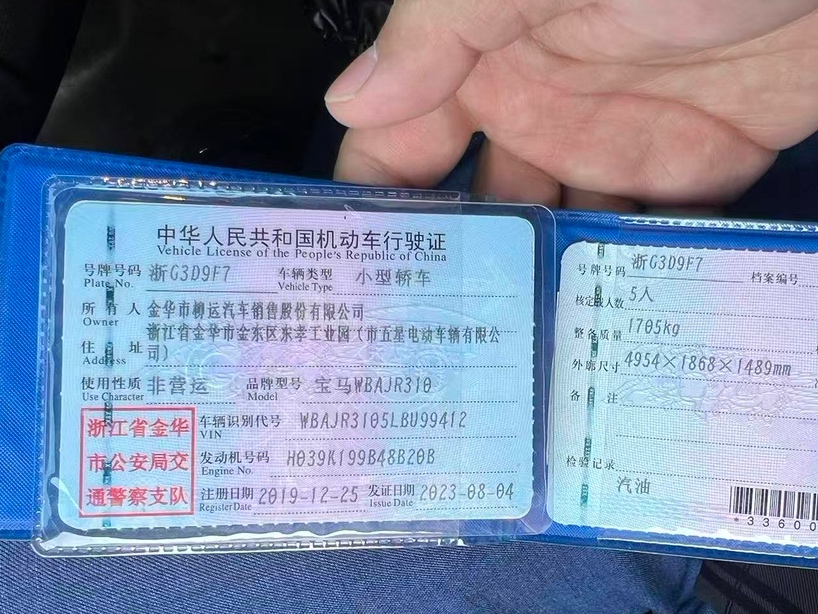 中华人民共和国机动车行驶证
Vehicle License of the People's Republic of China
号牌号码 浙G3D9F7 车辆类型 小型轿车
Plate No. Vehicle Type
所有人 金华市柳运汽车销售股份有限公司
Owner
住址 浙江省金华市金东区东孝工业园(市五星电动车辆有限公
Address 司)
使用性质 非营运 品牌型号 宝马WBAJR310
Use Character Model
浙江省金华
市公安局交
通警察支队
车辆识别代号 WBAJR3105LBU99412
VIN
发动机号码 H039K199B48B20B
Engine No.
注册日期 2019-12-25 发证日期 2023-08-04
Register Date Issue Date
号牌号码 浙G3D9F7 档案编号
核定载人数 5人
整备质量 1705kg
外廓尺寸 4954×1868×1489mm
备注
检验记录
汽油
*33600